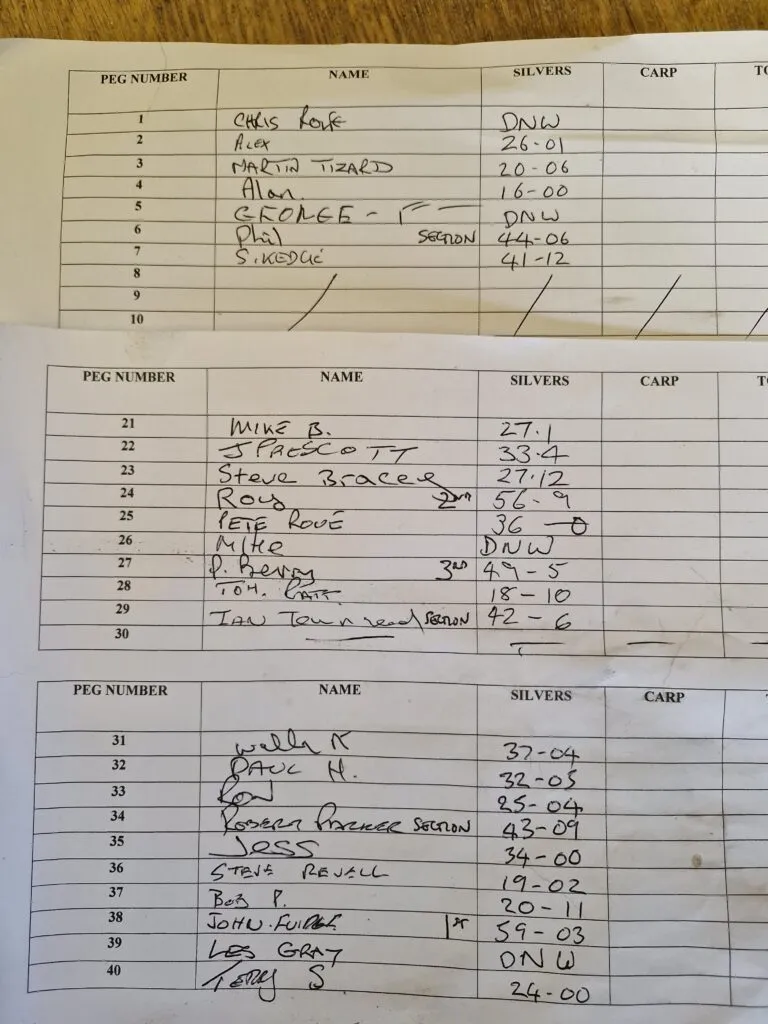 PEG NUMBER NAME SILVERS CARP
1 CHRIS ROLFE DNW
2 ALEX 26-01
3 MARTIN TIZARD 20-06
4 Alan. 16-00
5 GEORGE - DNW
6 Phil SECTION 44-06
7 S. KEDGE 41-12
8
9
10
PEG NUMBER NAME SILVERS CARP
21 MIKE B. 27.1
22 J PRESCOTT 33.4
23 Steve Bracey 27.12
24 Roy 2ND 56-9
25 PETE ROUE 36-0
26 Mike DNW
27 P. Berry 3RD 49-5
28 TOM. 18-10
29 IAN Townsend SECTION 42-6
30
PEG NUMBER NAME SILVERS CARP
31 K 37-04
32 PAUL H. 32-05
33 RON 25-04
34 ROBERT PARKER SECTION 43-09
35 JESS 34-00
36 STEVE REVALL 19-02
37 BOB P. 20-11
38 JOHN. FUIDGE 1ST 59-03
39 LES GRAY DNW
40 TERRY S 24-00